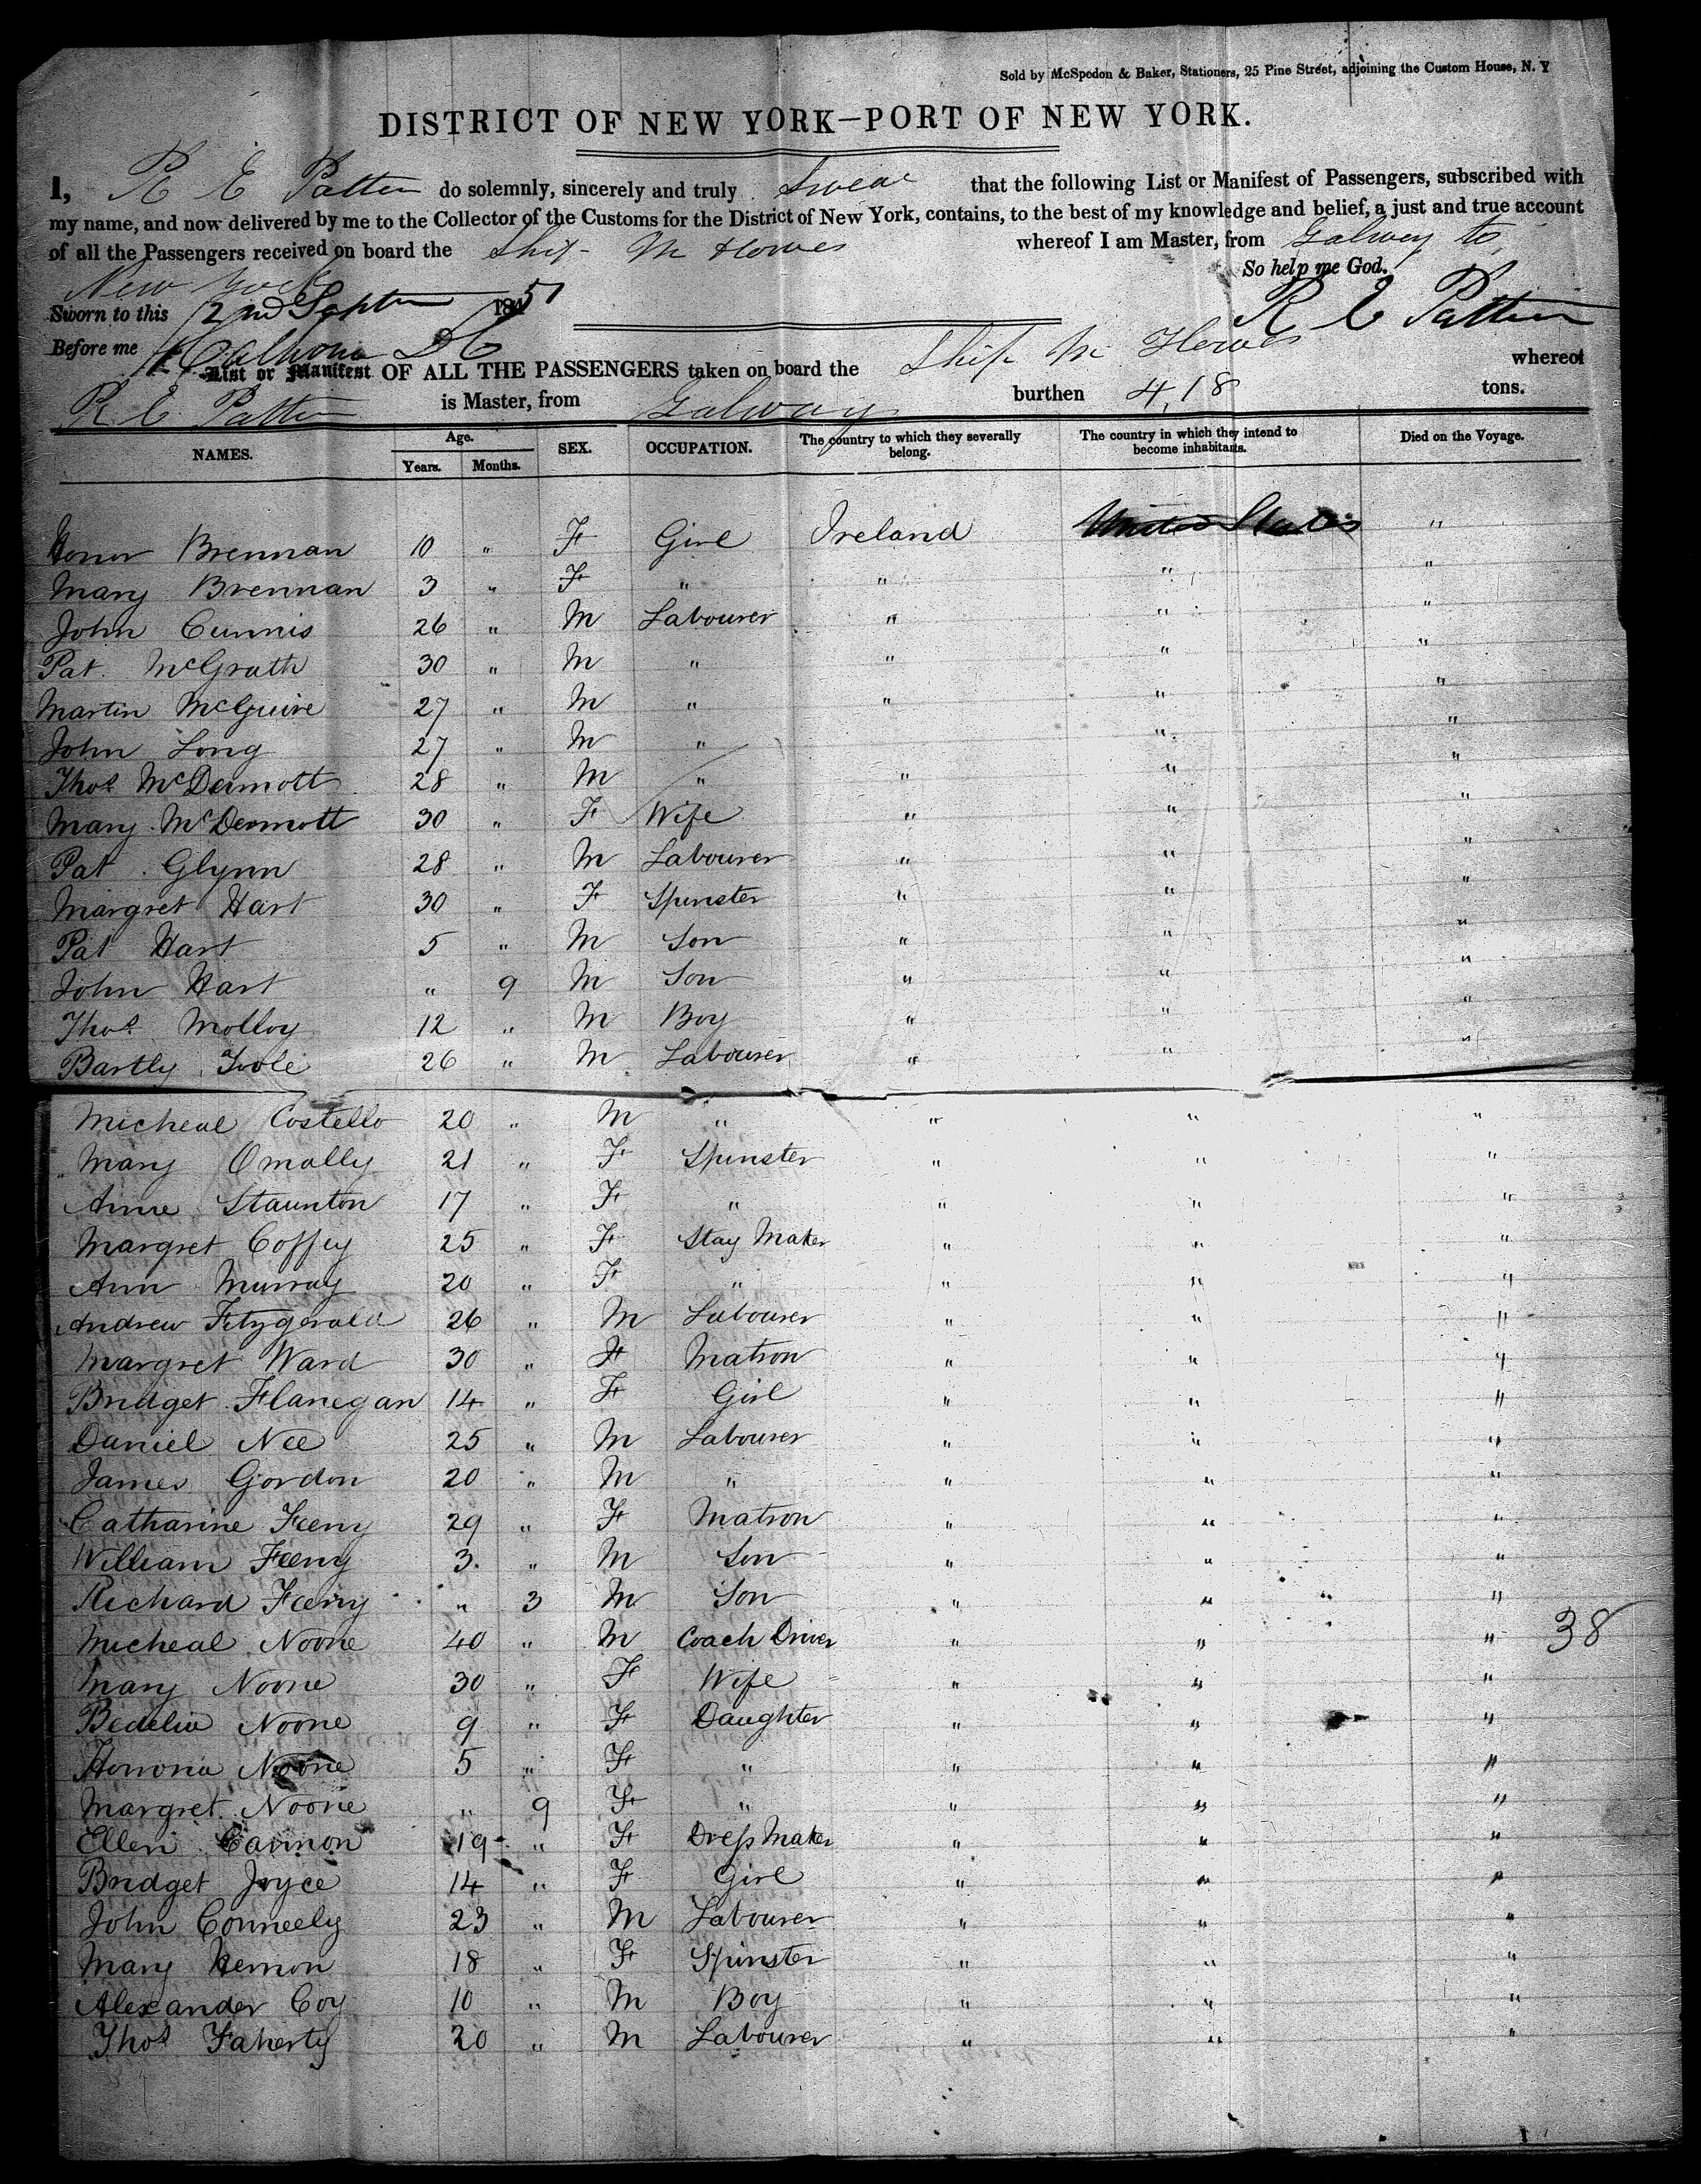 Sold by McSpedon & Baker, Stationers, 25 Pine Street, adjoining the Custom House, N. Y
DISTRICT OF NEW YORK—PORT OF NEW YORK.
I, R E Patten do solemnly, sincerely and truly Swear that the following List or Manifest of Passengers, subscribed with
my name, and now delivered by me to the Collector of the Customs for the District of New York, contains, to the best of my knowledge and belief, a just and true account
of all the Passengers received on board the Ship M Howes whereof I am Master, from Galway to
New York So help me God.
Sworn to this 2nd Septr 1851 R E Patten
Before me Calhoun DC
List or Manifest OF ALL THE PASSENGERS taken on board the Ship M Howes whereof
R E Patten is Master, from Galway burthen 418 tons.
NAMES. Age. Years. Months. SEX. OCCUPATION. The country to which they severally belong. The country in which they intend to become inhabitants. Died on the Voyage.
Honor Brennan 10 " F Girl Ireland United States "
Mary Brennan 3 " F " " " "
John Cunnis 26 " M Labourer " " "
Pat. McGrath 30 " M " " " "
Martin McGuire 27 " M " " " "
John Long 27 " M " " "
Thos McDermott 28 " M " " " "
Mary McDermott 30 " F Wife " " "
Pat. Glynn 28 " M Labourer " " "
Margret Hart 30 " F Spinster " " "
Pat Hart 5 " M Son " " "
John Hart " 9 M Son " " "
Thos Molloy 12 " M Boy " " "
Bartly Toole 26 " M Labourer " " "
Micheal Costello 20 " M " " " "
Mary Omally 21 " F Spinster " " "
Anne Staunton 17 " F " " " "
Margret Coffey 25 " F Stay Maker " " "
Ann Murray 20 " F " " " "
Andrew Fitzgerald 26 " M Labourer " " "
Margret Ward 30 " F Matron " " "
Bridget Flanegan 14 " F Girl " " "
Daniel Nee 25 " M Labourer " " "
James Gordon 20 " M " " " "
Catharine Feeny 29 " F Matron " " "
William Feeny 3 " M Son " " "
Richard Feeny " 3 M Son " " "
Micheal Noone 40 " M Coach Driver " " " 38
Mary Noone 30 " F Wife " " "
Bedelia Noone 9 " F Daughter " " "
Honoria Noone 5 " F " " " "
Margret Noone " 9 F " " " "
Ellen Cannon 19 " F Dress Maker " " "
Bridget Joyce 14 " F Girl " " "
John Conneely 23 " M Labourer " " "
Mary Hernon 18 " F Spinster " " "
Alexander Coy 10 " M Boy " " "
Thos Faherty 20 " M Labourer " " "